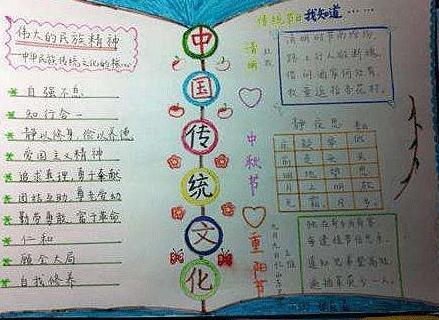 伟大的民族精神
—中华民族传统文化的核心
自强不息
知行合一
静以修身 俭以养德
爱国主义精神
追求真理 勇于奉献
团结互助 尊老爱幼
勤劳勇敢 富于革命
仁和
顾全大局
自我修养
中
国
传
统
文
化
传统节日我知道……
清明
清明时节雨纷纷
路上行人欲断魂
借问酒家何处有
牧童遥指杏花村
中秋节
静夜思
重阳节
九月九日忆山东
王维
独在异乡为异客
每逢佳节倍思亲
遥知兄弟登高处
遍插茱萸少一人